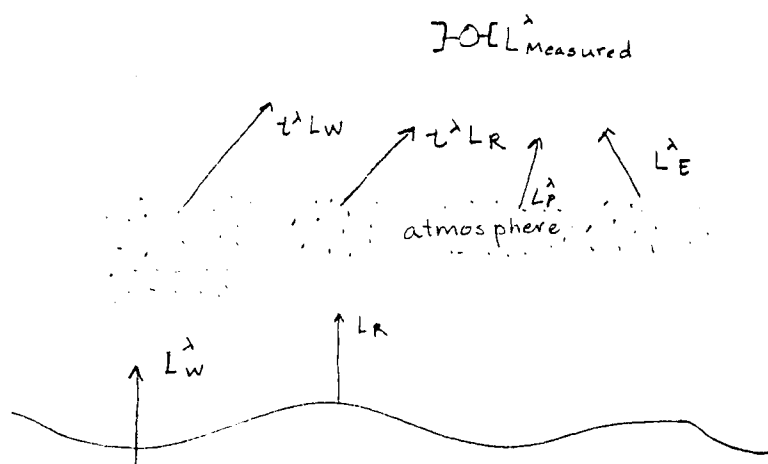 L^λ Measured
t^λ L_W
t^λ L_R
L^λ_P
L^λ_E
atmosphere
L_R
L^λ_W